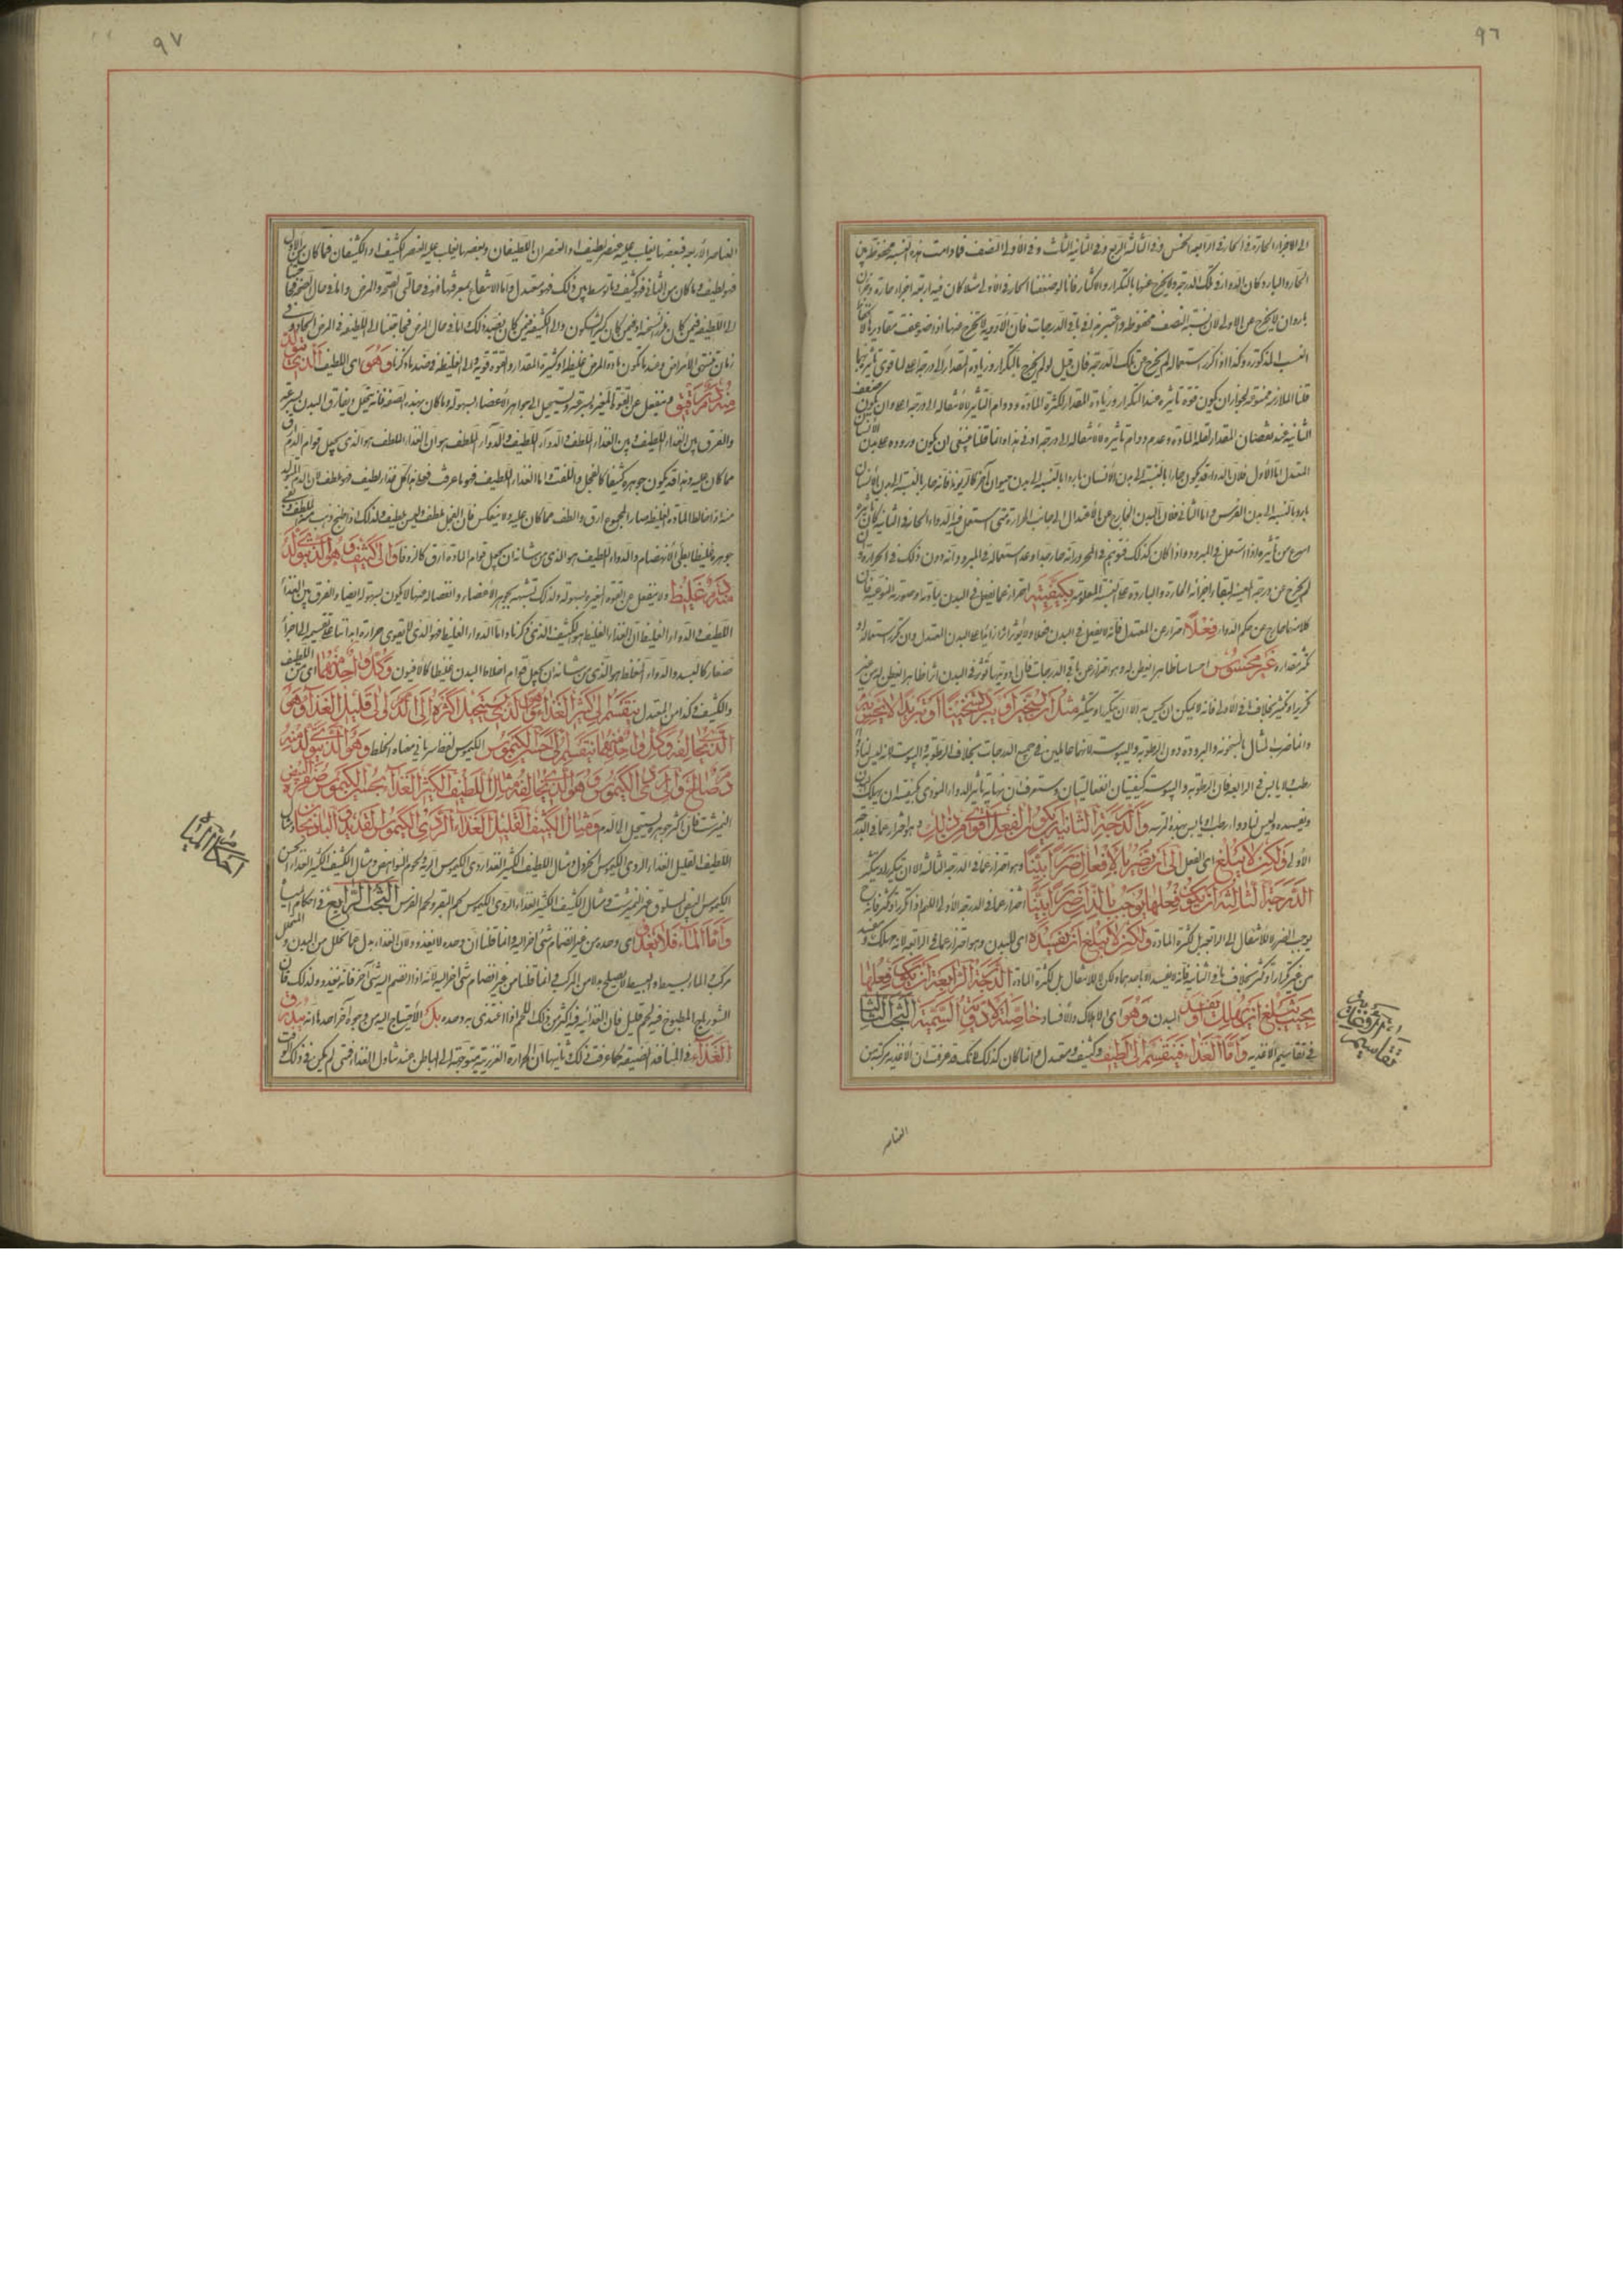 ٩٦
الى الاجزاء الحارة فى الحار فى الرابعة الخمس وفى الثالثة الربع وفى الثانية الثلث وفى الأولى النصف فما دامت هذه النسبة محفوظة بين
الحار والبارد كان الدواء فى تلك الدرجة ولا يخرج عنها بالتكرار والاكثار فانا لو ضعفنا الحار فى الأولى مثلا كان فيه اربعة اجزاء حارة وجزآن
باردان لا يخرج عن الاولى لان نسبة النصف محفوظة واعتبر هذا فى باقى الدرجات فان الأدوية لا تخرج عنها اذا ضوعفت مقاديرها
النسب المذكورة وكذا اذا تكرر استعماله لم يخرج عن تلك الدرجة فان قيل لو لم يخرج بالتكرار وزيادة المقدار الى درجة اعلى لما قوى تأثيرها
قلنا الملازمة ممنوعة لجواز ان يكون قوة تأثيره عند التكرار وزيادة المقدار لكثرة المادة ودوام التأثير لا لانتقاله الى درجة اعلى وان يكون ضعف
الثانية عند نقصان المقدار لقلة المادة وعدم دوام تأثيره لا لانتقاله الى درجة ادنى هذا وانما قلنا ينبغى ان يكون وروده على بدن الانسان
المعتدل اما الأول فلان الدواء قد يكون حارا بالنسبة الى بدن الأنسان باردا بالنسبة الى بدن حيوان آخر كالزيوند فانه حار بالنسبة الى بدن الأنسان
بارد بالنسبة الى بدن الفرس واما الثانى فلان البدن الخارج عن الأعتدال الى جانب الحرارة متى استعمل فيه الدواء الحار فى الثانية كان تأثيره
اسرع من تأثيره اذا استعمل فى المبرود واذا كان كذلك فتوهم فى المحرور انه حار جدا وعند استعماله فى المبرود انه دون ذلك فى الحرارة
لم يخرج عن درجته المعينة لبقاء اجزائه الحارة والباردة على النسبة المعلومة بكيفيته احتراز عما يفعل فى البدن بمادته او صورته النوعية فان
كلا منهما خارج عن حكم الدواء فعلا احتراز عن المعتدل فانه لا يفعل فى البدن فعلا ولا يؤثر اثرا زائدا على البدن المعتدل وان تكرر استعماله او
كثر مقداره غير محسوس احساسا ظاهرا وهو احتراز عن باقى الدرجات فان ادويتها تؤثر فى البدن اثرا ظاهرا من غير
تكرير او تكثير بخلاف ما فى الأولى فانه لا يمكن ان يحس به الا ان يتكرر او يتكثر مثل ان يسخن او يبرد تسخينا او تبريدا لا يحس به
وانما ضرب المثال بالسخونة والبرودة دون الرطوبة واليبوسة لانهما فاعلتين فى جميع الدرجات بخلاف الرطوبة واليبوسة اذ ليس لنا دواء
رطب ولا يابس فى الرابعة فان الرطوبة واليبوسة كيفيتان انفعاليتان وستعرف ان نهاية تأثير الدواء الموذى بكيفيته ان يهلك
ويفسد وليس لنا دواء رطب او يابس بهذه المرتبة والدرجة الثانية ان يكون الفعل اقوى من ذلك وهو احتراز عما فى الدرجة
الأولى ولكن لا يبلغ اى الفعل الى ان يضر بالأفعال ضررا بينا وهو احتراز عما فى الدرجة الثالثة الا ان يتكرر او يتكثر
الدرجة الثالثة ان يكون فعلها يوجب بالذات ضررا بينا احتراز عما فى الدرجة الأولى اللهم اذا تكرر او كثر فانه
يوجب الضرر لا للانتقال الى الرابعة بل لكثرة المادة ولكن لا يبلغ ان يفسده اى البدن وهو احتراز عما فى الرابعة لانه مهلك
من غير تكرار او تكثر بخلاف ما فى الثانية فانه لا يفسد الا باحدهما ولكن لا للانتقال بل لكثرة المادة الدرجة الرابعة ان يكون فعلها
بحيث يبلغ ان يهلك او يفسد البدن وهو اى الاهلاك والأفساد خاصة الادوية السمية البحث الثالث
فى تقاسيم الاغذية واما الغذاء فينقسم الى لطيف وكثيف ومعتدل وانما كان كذلك لانك قد عرفت ان الاغذية مركبة من
العناصر
٩٧
العناصر الأربعة فبعضها يغلب عليه عنصر لطيف او العنصران اللطيفان وبعضها يغلب عليه العنصر الكثيف او الكثيفان فما كان من الأول
فهو لطيف وما كان من الثانى فهو كثيف وما توسط بين ذلك فهو معتدل واما الانتفاع بمعرفتها فهو فى حالتى الصحة والمرض واما فى حال الصحة
الى اللطيفة فيمن كان غزير او فيمن كان كثير السكون والى الكثيفة فيمن كان بضد ذلك واما فى حال المرض فيما يحتاج الى اللطيفة فى المرض الحاد وفى
زمان منتهى الأمراض وعند ما تكون مادة المرض غليظة او كثيرة المقدار والقوة قوية والى الغليظة فى ضد ما ذكرنا وهو اى اللطيف الذى يتولد
منه دم رقيق وينفعل عن القوة المغيرة بسرعة ويستحيل الى جواهر الأعضاء بسهولة وما كان بهذه الصفة فانه يتحلل ويفارق البدن بسرعة
والفرق بين الغذاء اللطيف وبين الغذاء الملطف والدواء اللطيف والدواء الملطف هو ان الغذاء الملطف هو الذى يجعل قوام الدم ارق
مما كان عليه وهذا قد يكون جوهره كثيفا كالفجل والملفت واما الغذاء اللطيف فهو ما عرفت فعلى هذا كل غذاء لطيف فهو ملطف لأن الدم المتولد
منه اذا خالط المادة الغليظة صار المجموع ارق والطف مما كان عليه ولا ينعكس فان الفجل ملطف وليس بلطيف ولذلك اذا طبخ وذهب منه الملطف بقى
جوهره غليظا بطئ الانهضام والدواء اللطيف هو الذى من شأنه ان يجعل قوام المادة ارق كالزوفا والى كثيف وهو الذى يتولد
منه دم غليظ ولا ينفعل عن القوة المغيرة بسهولة ولذلك تشبهه بجوهر الأعضاء وانفصاله عنها لا يكون بسهولة ايضا والفرق بين الغذاء
اللطيف والدواء الغليظ ان الغذاء الغليظ هو الكثيف الذى ذكرناه واما الدواء الغليظ فهو الذى لا تقوى حرارة ابداننا على تقسيمه الى اجزاء
صغار كالبسد والدواء المغلظ هو الذى من شأنه ان يجعل قوام اخلاط البدن غليظا كالأفيون وكل واحد منهما اى من اللطيف
والكثيف وكذا من المعتدل ينقسم الى كثير الغذاء وهو الذى يستحيل اكثره الى الدم والى قليل الغذاء وهو
الذى يخالفه وكل واحد منهما ينقسم الى حسن الكيموس الكيموس لفظ سريانى معناه الخلط وهو الذى يتولد منه
دم صالح والى ردى الكيموس وهو الذى يخالفه مثال اللطيف الكثير الغذاء الحسن الكيموس صفرة البيض
النيمرشت فان اكثر جوهره يستحيل الى الدم ومثال الكثيف القليل الغذاء الردى الكيموس القديد والباذنجان ومثال
اللطيف القليل الغذاء الردى الكيموس الخردل ومثال اللطيف الكثير الغذاء ردى الكيموس الرية ولحوم النواهض ومثال الكثيف الكثير الغذاء الحسن
الكيموس البيض المسلوق غير النيمرشت ومثال الكثيف الكثير الغذاء الردى الكيموس لحم البقر ولحم الفرس البحث الرابع فى احكام المياه
واما الماء فلا يغذو اى وحده من غير انضمام شئ آخر اليه وانما قلنا ان وحده لا يغذو لان الغذاء بدل عما تحلل من البدن والمتحلل
مركب والماء بسيط والبسيط لا يصلح بدلا من المركب وانما قلنا من غير انضمام شئ آخر اليه لانه اذا انضم اليه شئ آخر فانه يغذو ولذلك فان
الشورباج المطبوخ فيه لحم قليل فان الغذائية فيه اكثر من ذلك اللحم اذا اغتذى به وحده بل الأحتياج اليه من وجوه آخر احدها انه يبذرق
الغذاء فى المنافذ الضيقة كما عرفت فى ذلك وثانيها ان الحرارة الغريزية متوجهة الى الباطن عند تناول الغذاء فمتى لم يكن فى ذلك الوقت